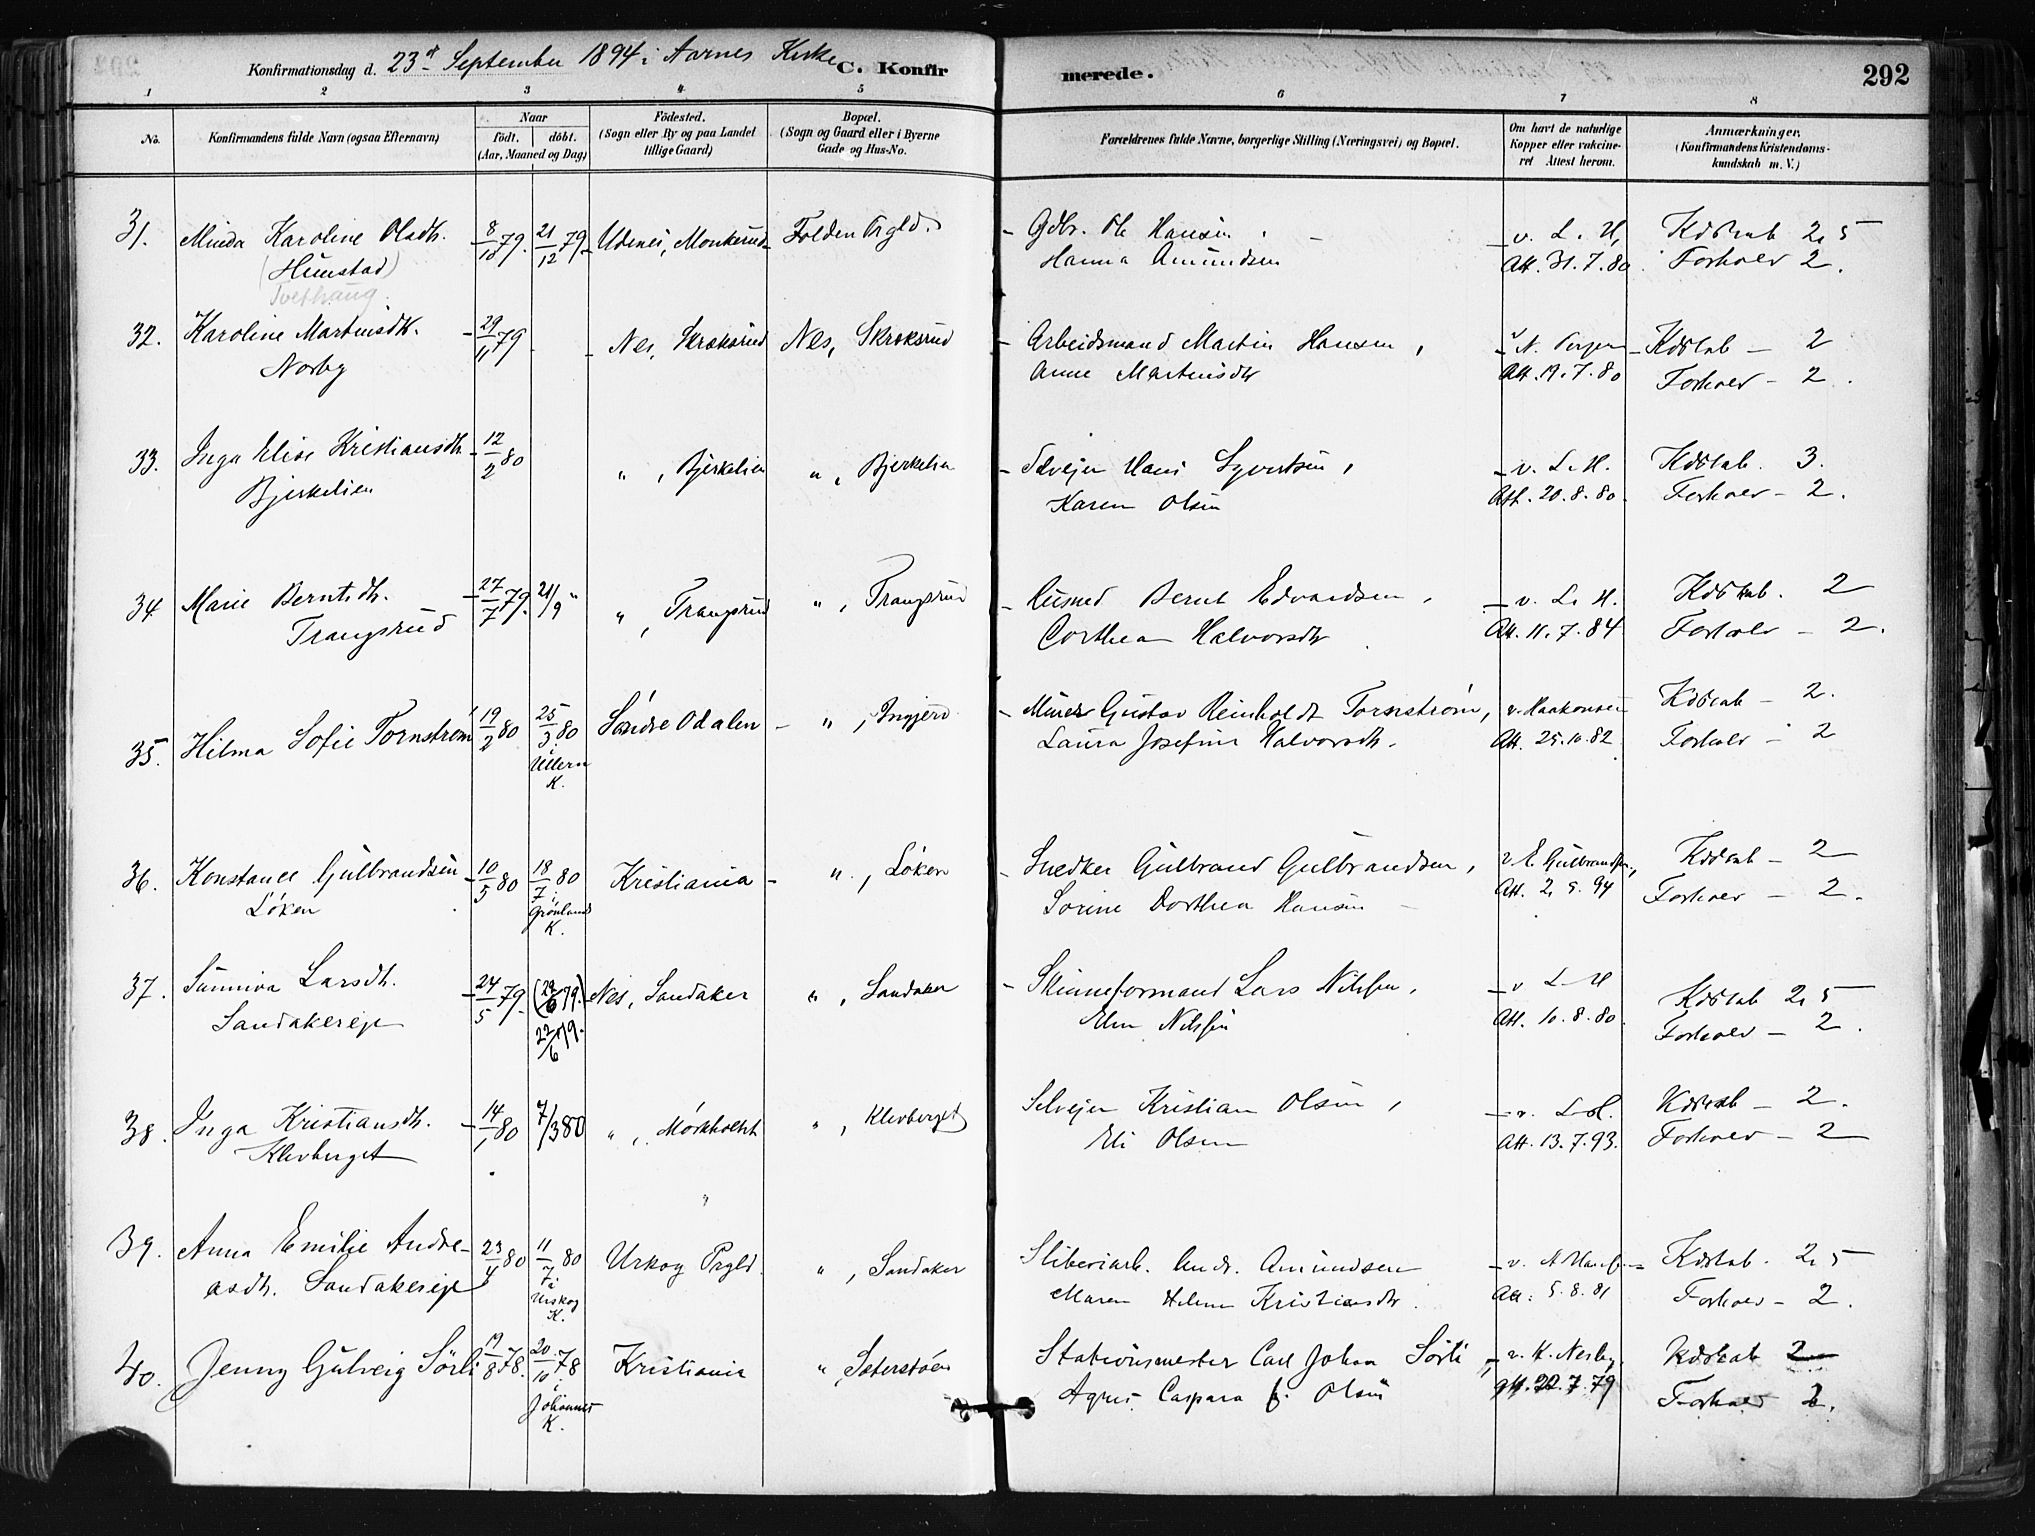 Konfirmationsdag d. 23de September 1894 i Aarnes Kirke C. Konfirmerede. 292
1 2 3 4 5 6 7 8
No. Konfirmandens fulde Navn (ogsaa Efternavn) Naar födt. döbt. (Aar, Maaned og Dag) Födested. (Sogn eller By og paa Landet tillige Gaard) Bopæl. (Sogn og Gaard eller i Byerne Gade og Hus-No. Forældrenes fulde Navne, borgerlige Stilling (Næringsvei) og Bopæl. Om havt de naturlige Kopper eller vakcineret Attest herom. Anmærkninger. (Konfirmandens Kristendomskundskab m. V.)
31. Minda Karoline Olsdt. 8/10 79. 21/12 79. Udenes, Monkerud Folden Prgld. Gdbr. Ole Hansen, v. L. H, Kdskab 2,5
(Hunstad) Hanna Amundsen Att. 31.7.80. Forhold 2.
Tvethaug
32. Karoline Martinsdt. 29/11 79 Nes, Skröksrud Nes, Skröksrud Arbeidsmand Martin Hansen, Kdskab - 2
Norby Anne Martinsdtr Att. 19.7.80 Forhold - 2.
33. Inga Elise Kristiansdt. 12/2 80 " , Bjerkelien " , Bjerkelien Selveier Hans Syvertsen, v. L. H. Kdskab. 3.
Bjerkelien Karen Olsen Att. 20.8.80. Forhold - 2.
34 Marie Berntsdt. 27/7 79. 21/9 " " , Trangsrud " , Trangsrud Husmd Bernt Edvardsen, v. L. H. Kdskab. 2
Trangsrud Corthea Halvorsdtr Att. 11.7.84 Forhold - 2.
35. Hilma Sofie Tornström 19/2 80 25/3 80 Söndre Odalen " , Ingjerd Murer Gustav Reinholdt Tornström, v. Haakonsen Kdskab - 2.
i Ullern K. Laura Josefine Halvorsdt. Att. 25.10.82. Forhold - 2
36. Konstance Gulbrandsen 10/5 80 18/7 80 Kristiania " , Löken Snedker Gulbrand Gulbrandsen, v. E. Gulbrandsen, Kdskab - 2
Löken i Grönlands K. Sorine Dorthea Hansen Att. 2. 5. 94 Forhold - 2.
37. Sunniva Larsdt. 24/5 79. (29/6 79.) Nes, Sandaker " , Sandaker Skinneformand Lars Nilsen, v L H Kdskab 2,5
Sandakereje 22/6 79. Nilsen Att. 10.8.80. Forhold - 2.
38. Inga Kristiansdt. 14/1 80 7/3 80 " , Mörkholtet " , Klevberget Selvejer Kristian Olsen, v. L. H. Kdskab - 2.
Klevberget Eli Olsen Att. 13.7.93. Forhold - 2
"
39. Anna Emilie Andre- 23/4 80 11/7 80 Urskog Prgld. " , Sandaker Sliberiarb. Andr. Amundsen Kdskab. 2,5
asdt. Sandakereje i Urskog K. Maren Helene Kristiansdtr. Att. 5.8.81 Forhold - 2.
40. Jenny Gulveig Sörli 19/8 78. 20/10 78 Kristiania " Seterstöen Stationsmester Carl Johan Sörli, v. K. Nesby. Kdskab 2
i Johannes K. Agnes Caspara f. Olsen Att. 22.7.79 Forhold 2.